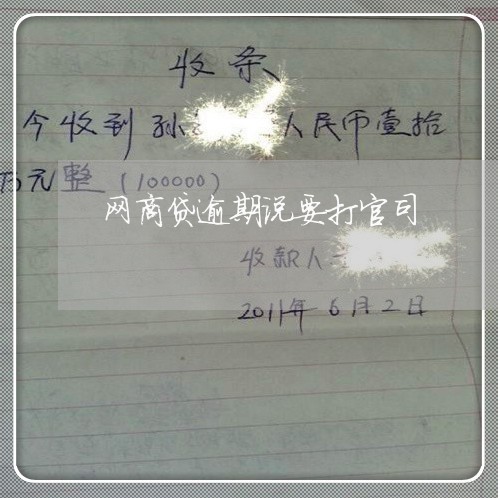 收条
今收到孙 人民币壹拾
万元整（100000）
网商贷逾期说要打官司
收款人
2011年6月2日